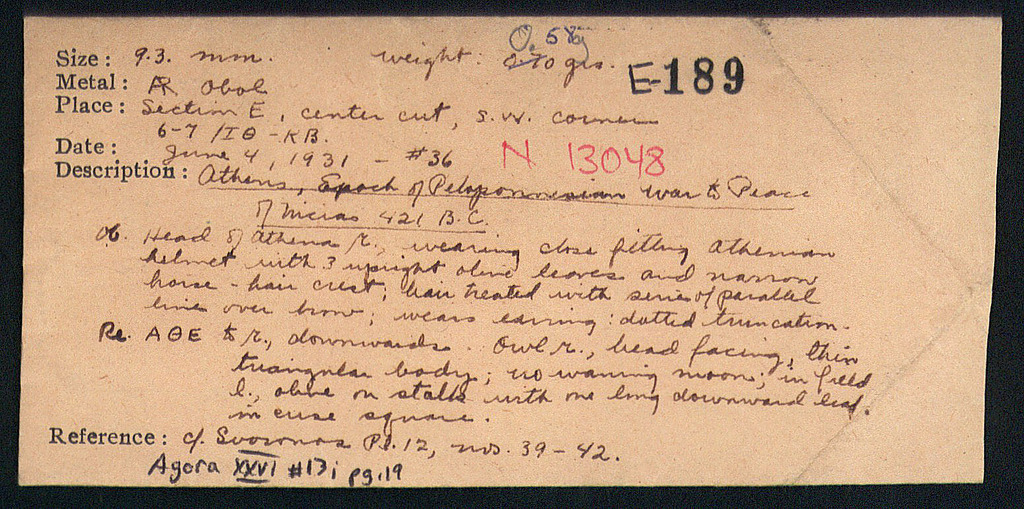 O. 58g
Size : 9.3. mm. weight : 270 grs. E-189
Metal : AR Obol
Place : Section E, center cut, s.w. corner
6-7 /ΙΘ - ΚΒ.
Date : June 4, 1931 - #36 N 13048
Description : Athens, Epoch of Peloponnesian War to Peace
of Nicias 421 B.C.
Ob. Head of Athena r., wearing close fitting Athenian
helmet with 3 upright olive leaves and narrow
horse-hair crest; hair treated with series of parallel
lines over brow; wears earring: dotted truncation.
Re. ΑΘΕ to r., downwards. Owl r., head facing, thin
triangular body; no waning moon; in field
l., olive on stalk with one long downward leaf.
incuse square.
Reference : cf. Svoronos Pl. 12, nos. 39-42.
Agora XXVI #13i pg. 19